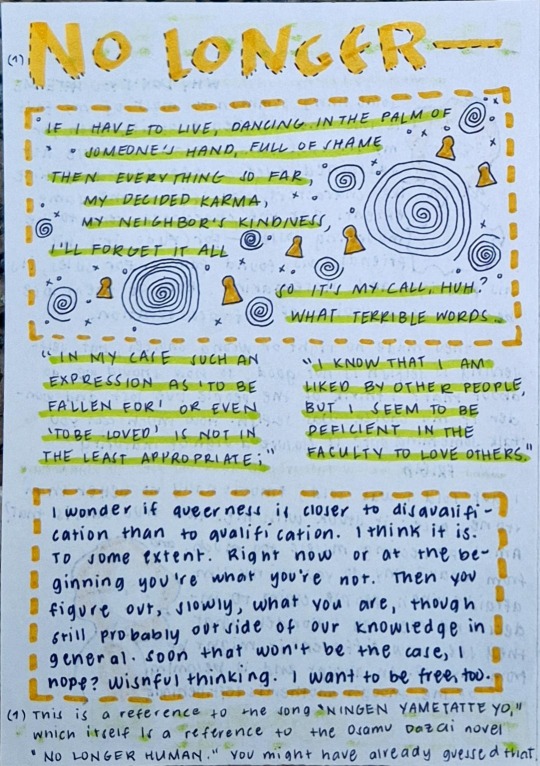 (1) NO LONGER—
IF I HAVE TO LIVE, DANCING IN THE PALM OF
SOMEONE'S HAND, FULL OF SHAME
THEN EVERYTHING SO FAR,
MY DECIDED KARMA,
MY NEIGHBOR'S KINDNESS,
I'LL FORGET IT ALL
SO IT'S MY CALL, HUH?
WHAT TERRIBLE WORDS.
"IN MY CASE SUCH AN
EXPRESSION AS 'TO BE
FALLEN FOR' OR EVEN
'TO BE LOVED' IS NOT IN
THE LEAST APPROPRIATE;"
"I KNOW THAT I AM
LIKED BY OTHER PEOPLE,
BUT I SEEM TO BE
DEFICIENT IN THE
FACULTY TO LOVE OTHERS."
I wonder if queerness is closer to disqualifi-
cation than to qualification. I think it is.
To some extent. Right now or at the be-
ginning you're what you're not. Then you
figure out, slowly, what you are, though
still probably outside of our knowledge in
general. Soon that won't be the case, I
hope? Wishful thinking. I want to be free, too.
(1) This is a reference to the song "NINGEN YAMETATTE YO,"
which itself is a reference to the Osamu Dazai novel
"NO LONGER HUMAN." You might have already guessed that.